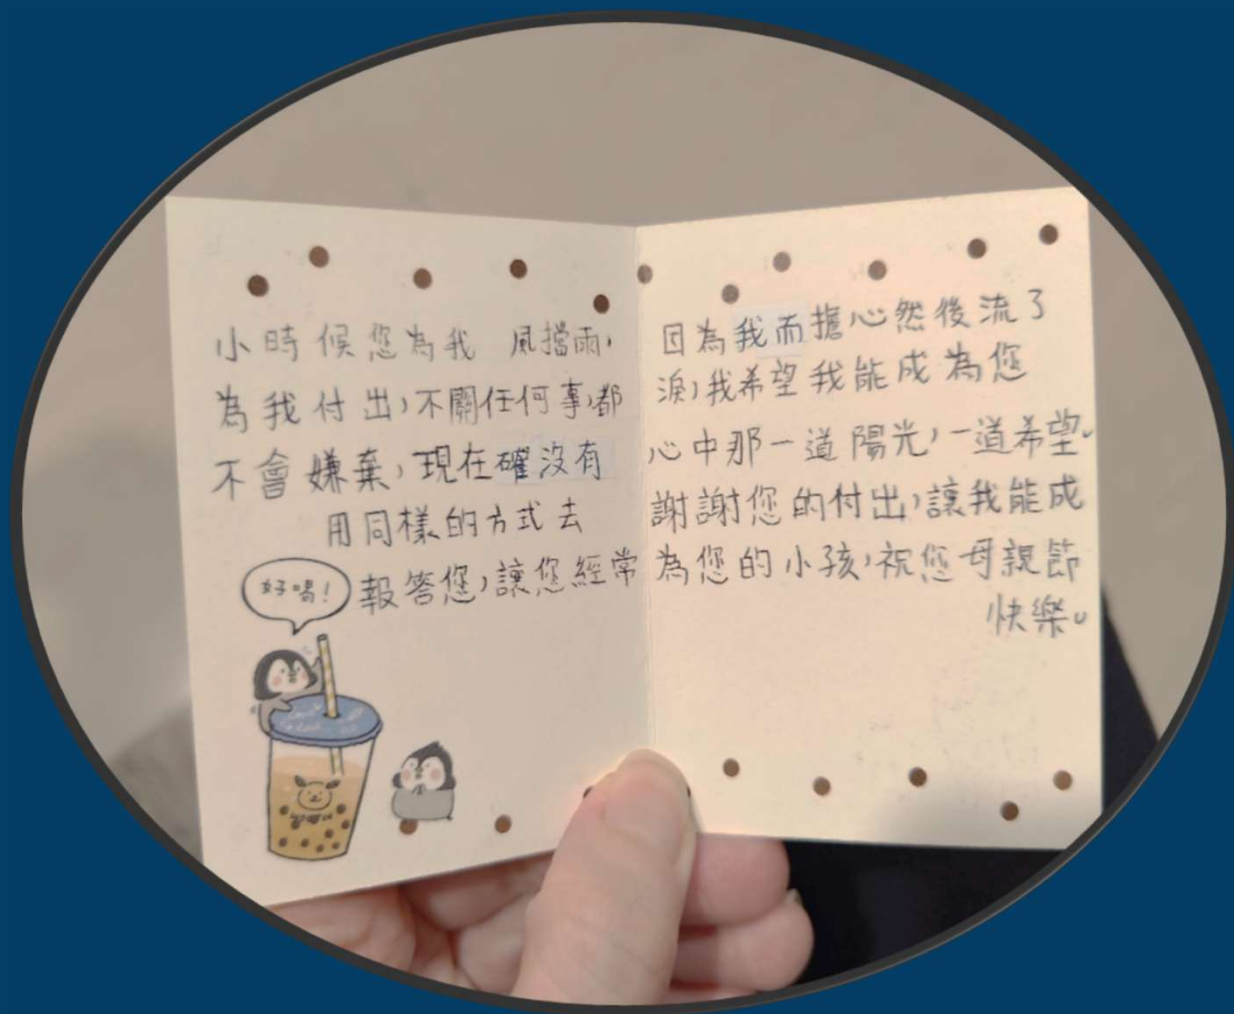 小時候您為我 風擋雨，
為我付出，不關任何事，都
不會嫌棄，現在確沒有
用同樣的方式去
報答您，讓您經常
好喝！
因為我而擔心然後流了
淚，我希望我能成為您
心中那一道陽光，一道希望。
謝謝您的付出，讓我能成
為您的小孩，祝您母親節
快樂。